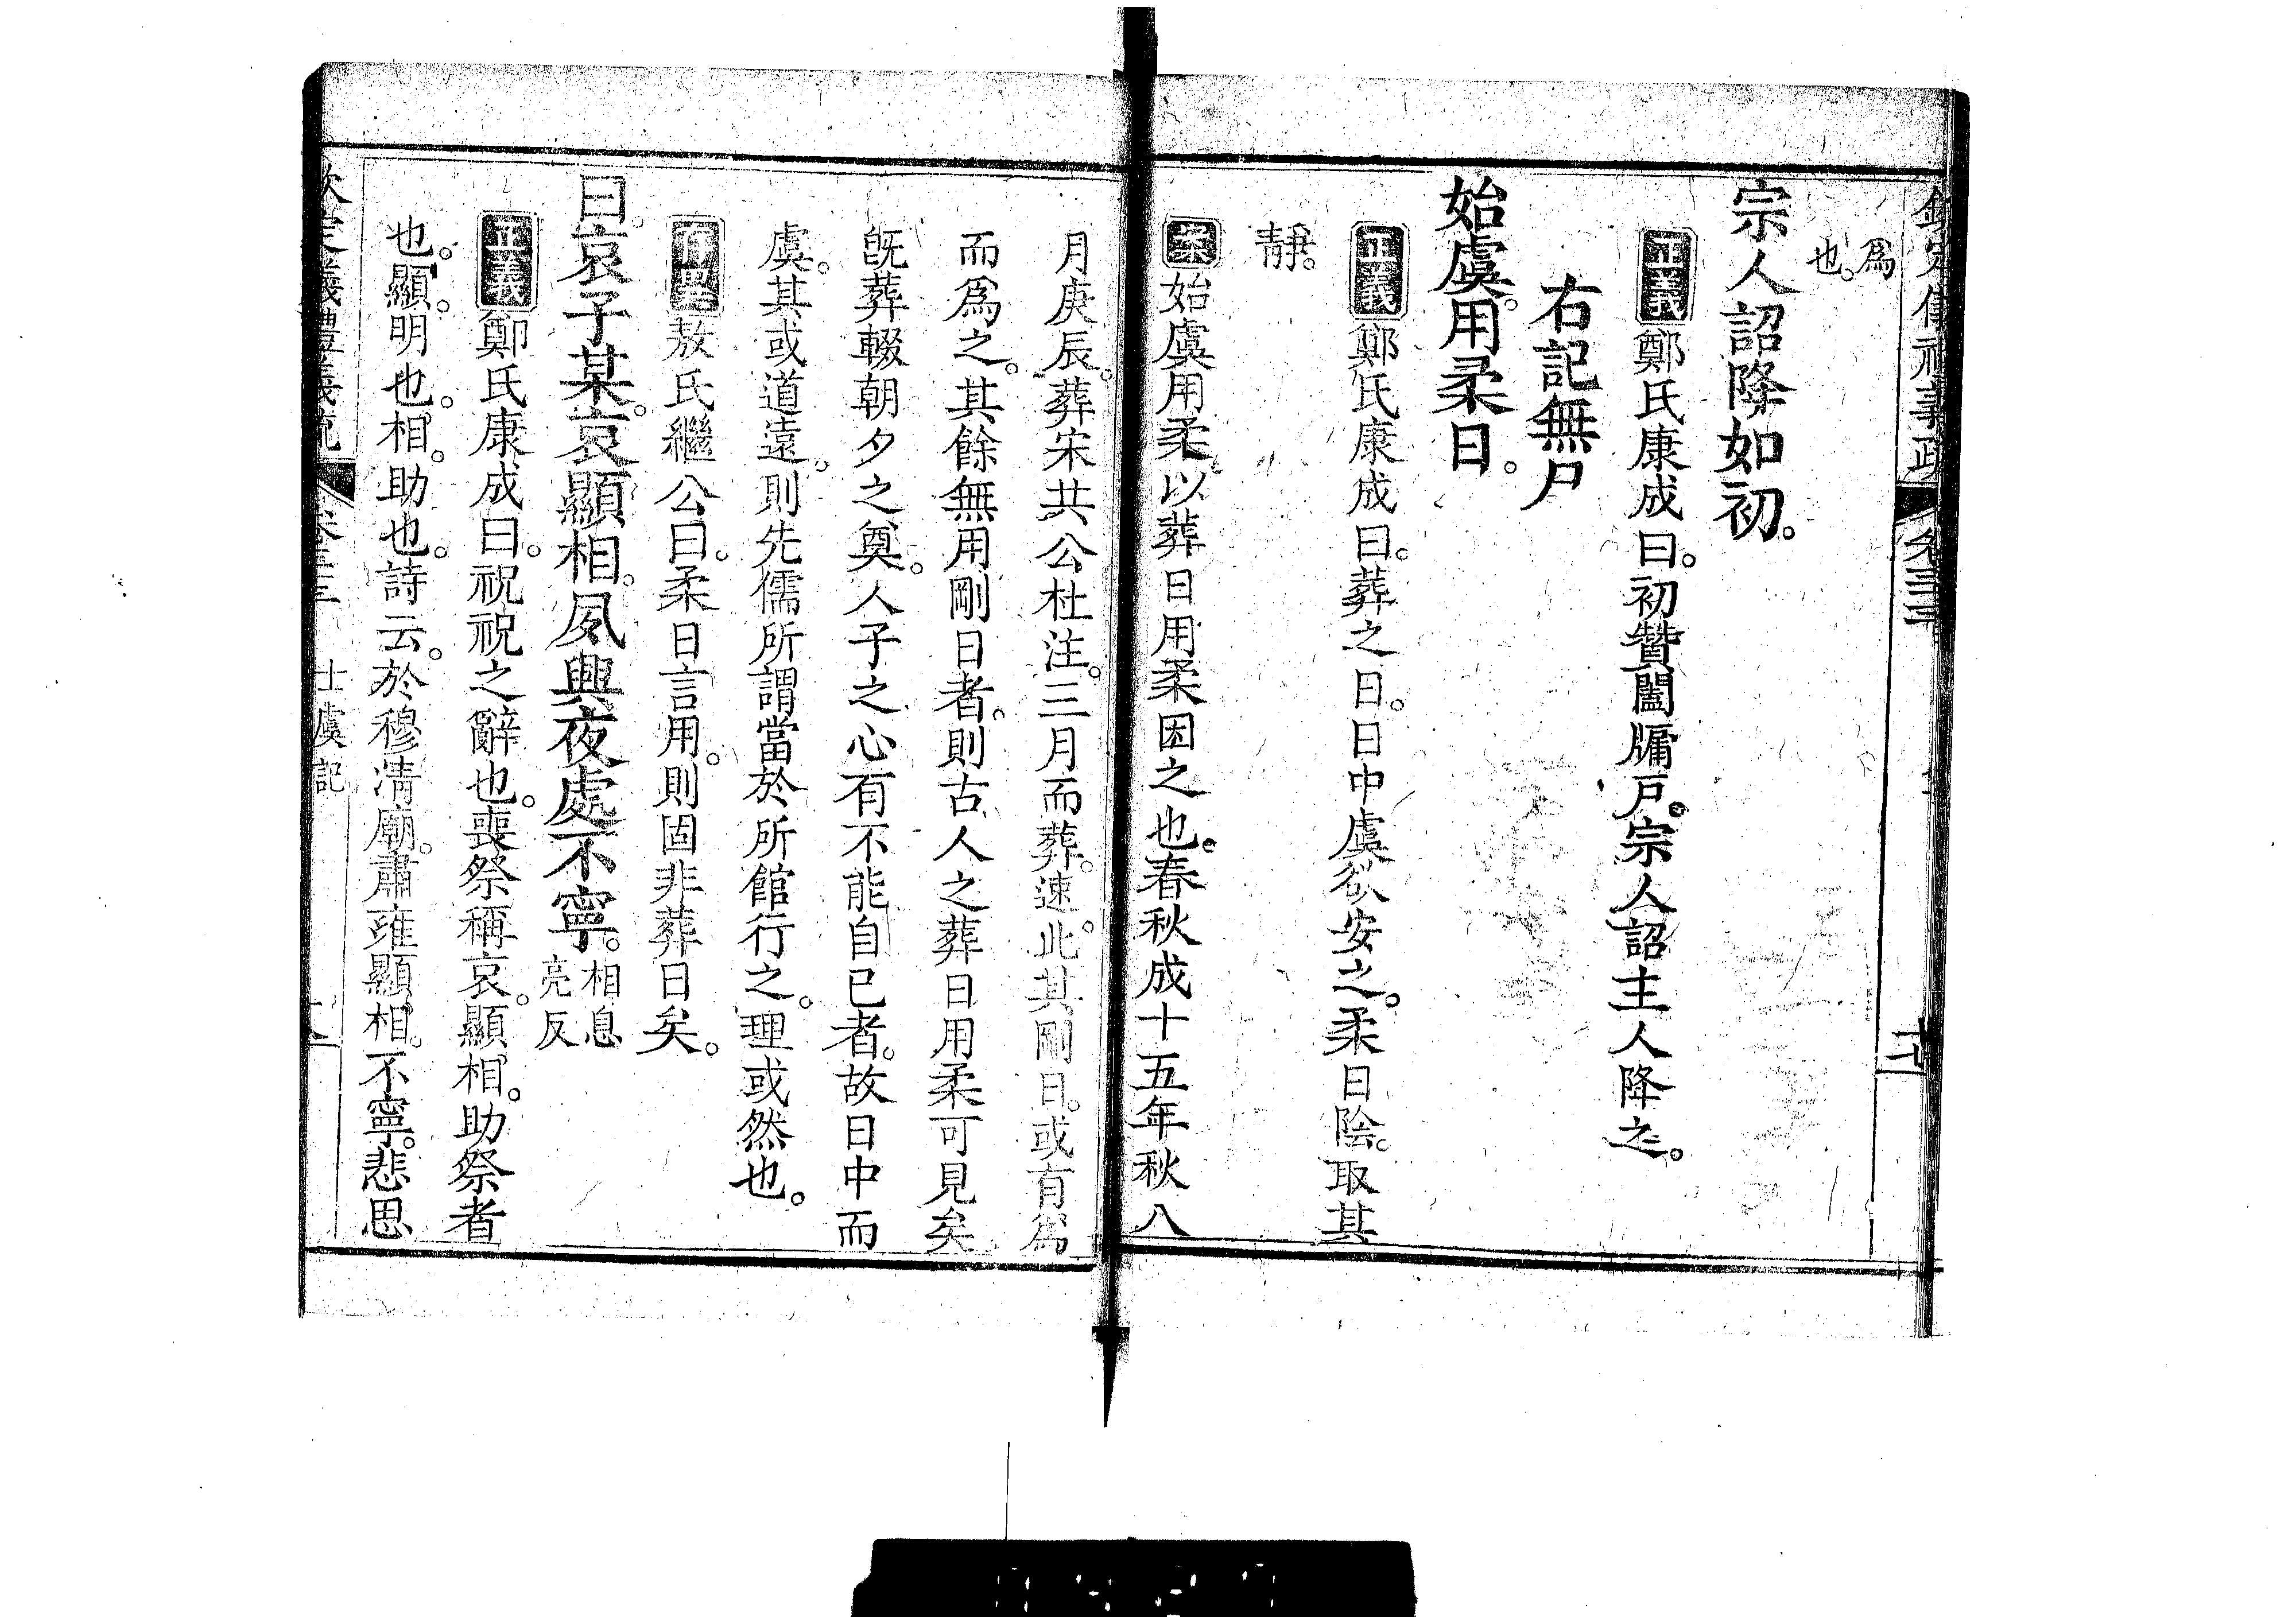 欽定儀禮義疏 卷三十三
爲
也。
宗人詔降如初。
正義鄭氏康成曰。初贊闔牖戶。宗人詔主人降之。
右記無尸
始虞。用柔日。
正義鄭氏康成曰。葬之日。日中虞。欲安之。柔日陰。取其
靜。
案始虞用柔。以葬日用柔因之也。春秋成十五年秋八
月庚辰。葬宋共公杜注。三月而葬。速。此其剛日。或有爲
而爲之。其餘無用剛日者。則古人之葬日用柔可見矣
旣葬輟朝夕之奠。人子之心有不能自已者。故日中而
虞。其或道遠。則先儒所謂當於所館行之。理或然也。
存疑敖氏繼公曰。柔日言用。則固非葬日矣。
曰。哀子某。哀顯相。夙興夜處不寧。相息亮反
正義鄭氏康成曰。祝祝之辭也。喪祭稱哀。顯相。助祭者
也。顯。明也。相。助也。詩云。於穆淸廟。肅雝顯相。不寧。悲思
欽定儀禮義疏 卷三十三 士虞記